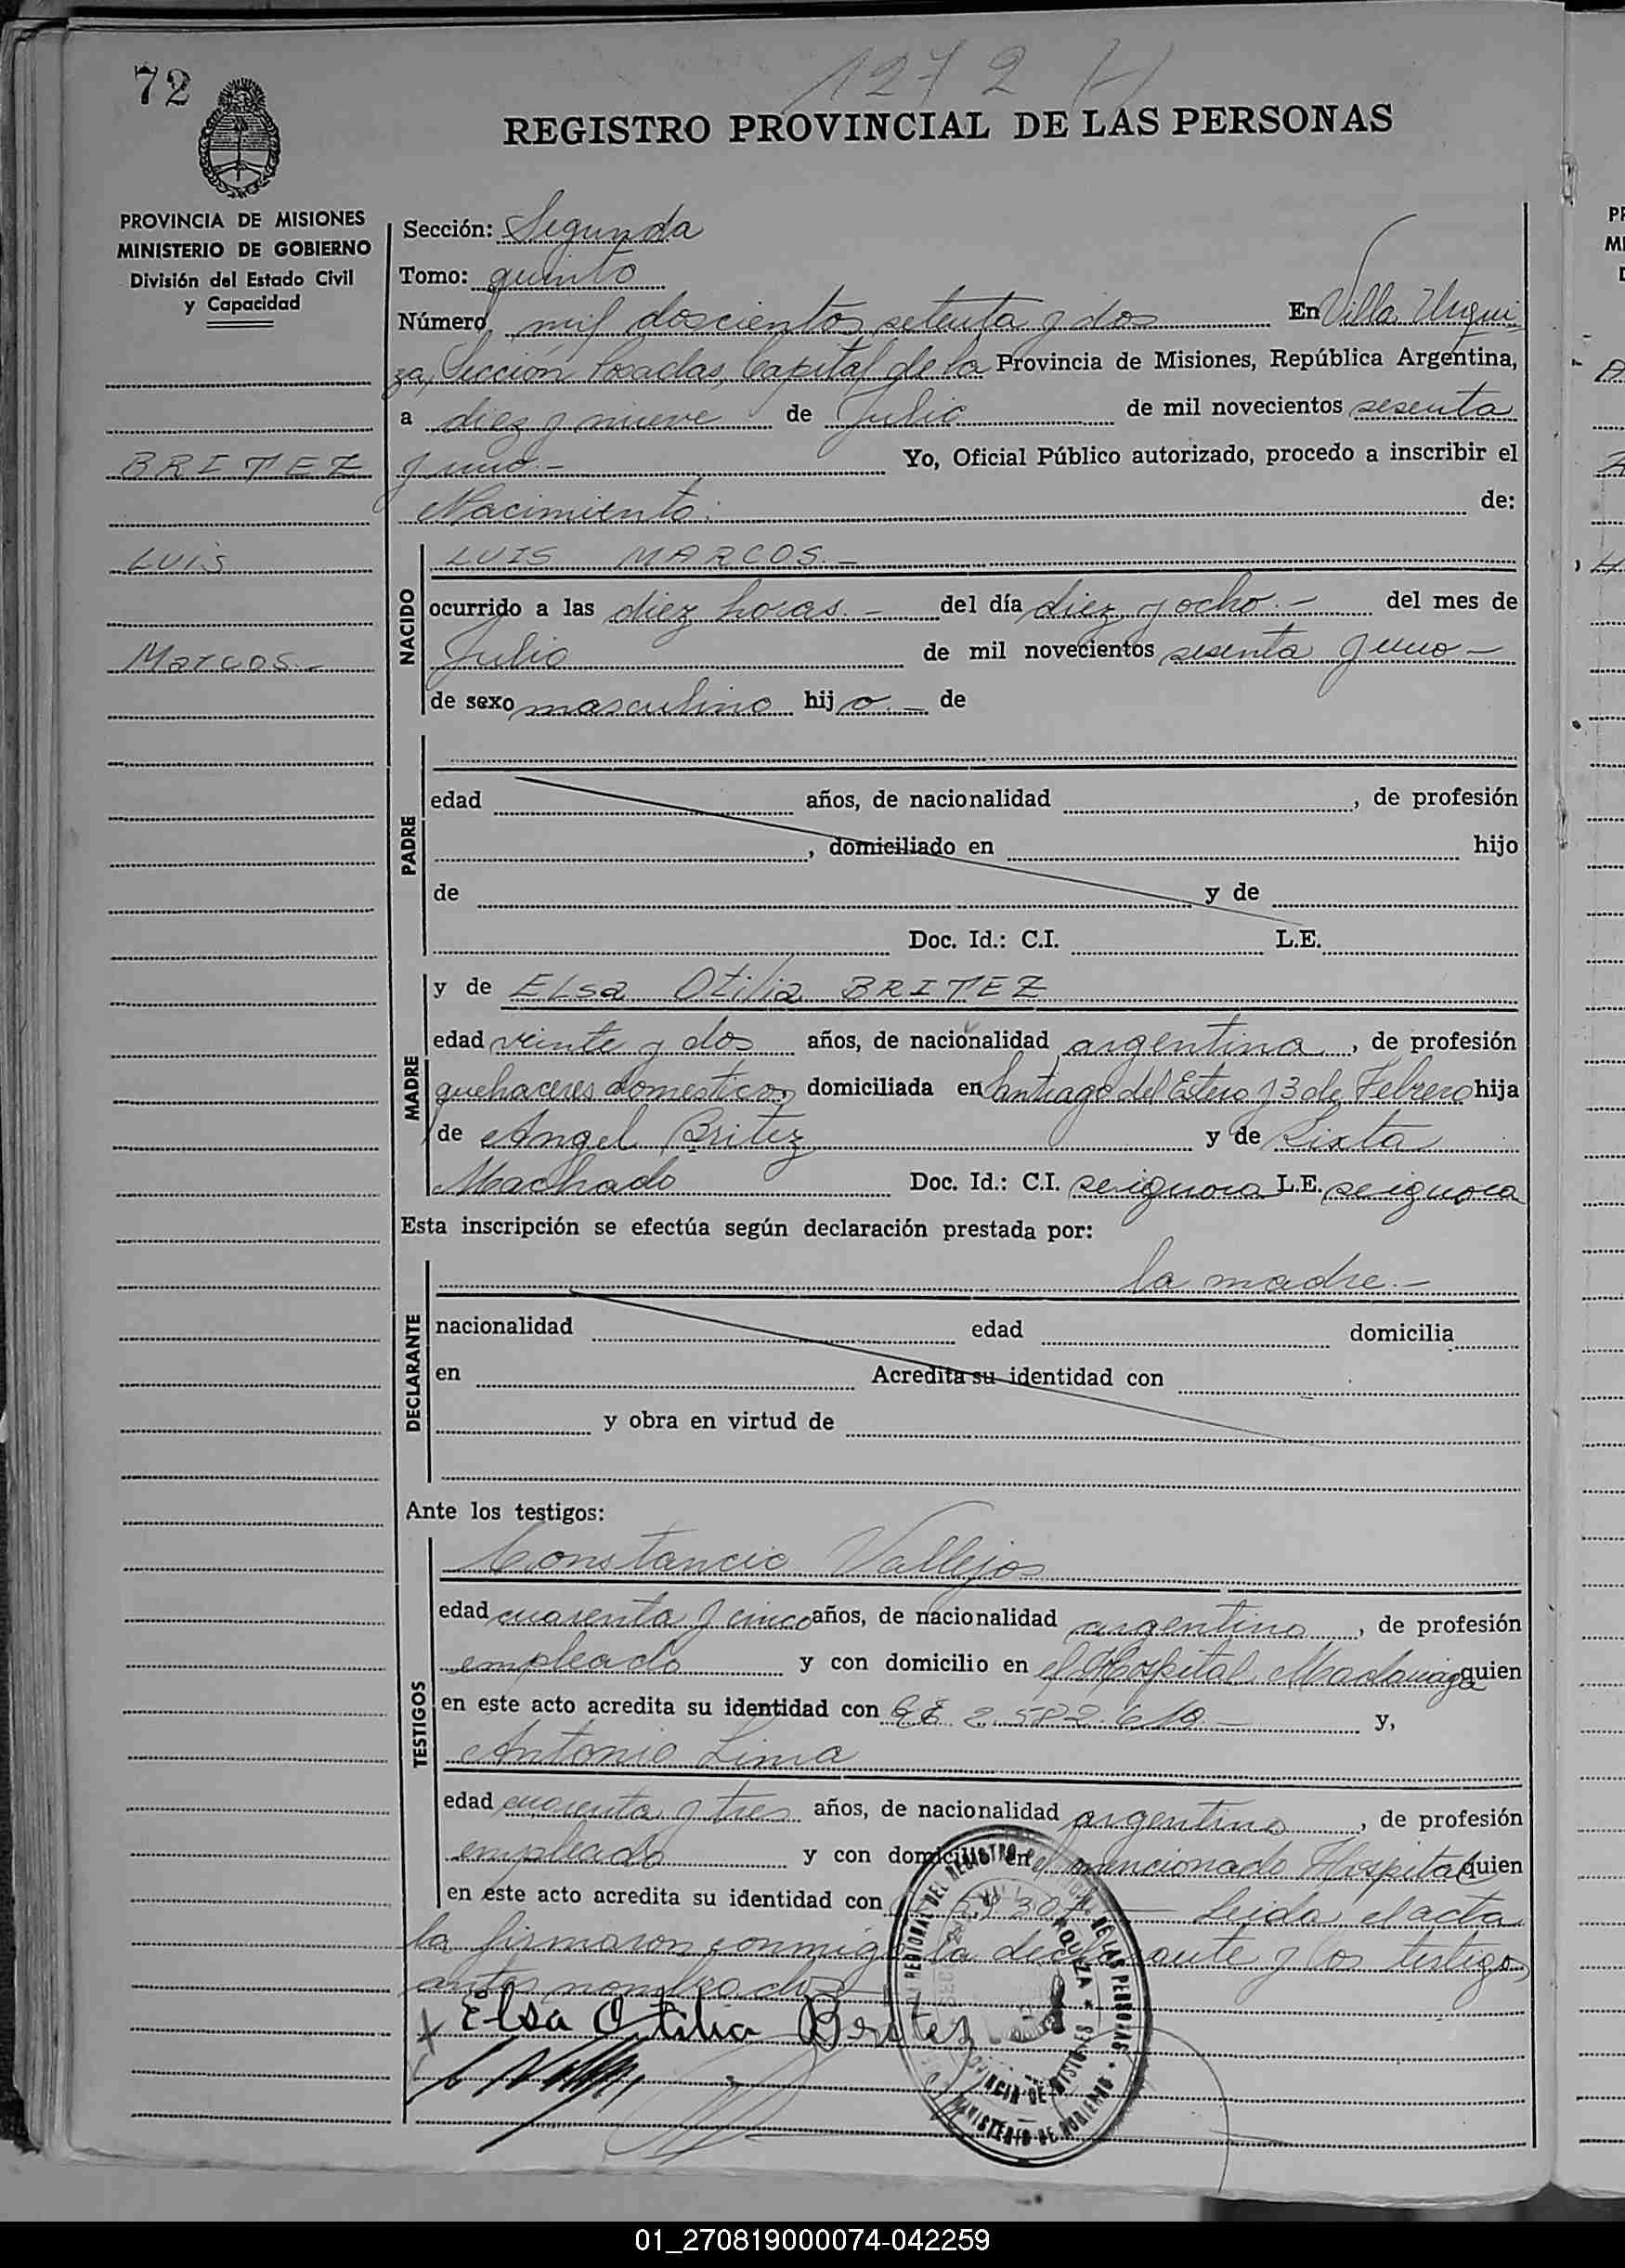 1272 H
72
REGISTRO PROVINCIAL DE LAS PERSONAS
PROVINCIA DE MISIONES
MINISTERIO DE GOBIERNO
División del Estado Civil
y Capacidad
BRITEZ
LUIS
Marcos.-
Sección: Segunda
Tomo: quinto
Número mil doscientos setenta y dos En Villa Urqui-
za, Sección Posadas, Capital de la Provincia de Misiones, República Argentina,
a diez y nueve de Julio de mil novecientos sesenta
y uno.- Yo, Oficial Público autorizado, procedo a inscribir el
Nacimiento. de:
NACIDO
LUIS MARCOS.-
ocurrido a las diez horas.- del día diez y ocho.- del mes de
Julio de mil novecientos sesenta y uno-
de sexo masculino hijo.- de
PADRE
edad años, de nacionalidad , de profesión
, domiciliado en hijo
de y de
Doc. Id.: C.I. L.E.
MADRE
y de ELsa Otilia BRITEZ
edad veinte y dos años, de nacionalidad argentina, de profesión
quehaceres domesticos, domiciliada en Santiago del Estero y 3 de Febrero hija
de Angel Britez y de Sixta
Machado Doc. Id.: C.I. se ignora L.E. se ignora
Esta inscripción se efectúa según declaración prestada por:
DECLARANTE
la madre.-
nacionalidad edad domicilia
en Acredita su identidad con
y obra en virtud de
Ante los testigos:
TESTIGOS
Constancio Vallejos
edad cuarenta y cinco años, de nacionalidad argentino, de profesión
empleado y con domicilio en el Hospital Madariaga quien
en este acto acredita su identidad con 2.582.610- y,
Antonio Lima
edad cuarenta y tres años, de nacionalidad argentino, de profesión
empleado y con domicilio en el mencionado Hospital quien
en este acto acredita su identidad con Leida el acta
la firmaron conmigo la declarante y los testigos
antes nombrados
Elsa Otilia Britez
REGIONAL DEL REGISTRO PROVINCIAL DE LAS PERSONAS * MINISTERIO DE GOBIERNO
PROVINCIA DE MISIONES
01_270819000074-042259